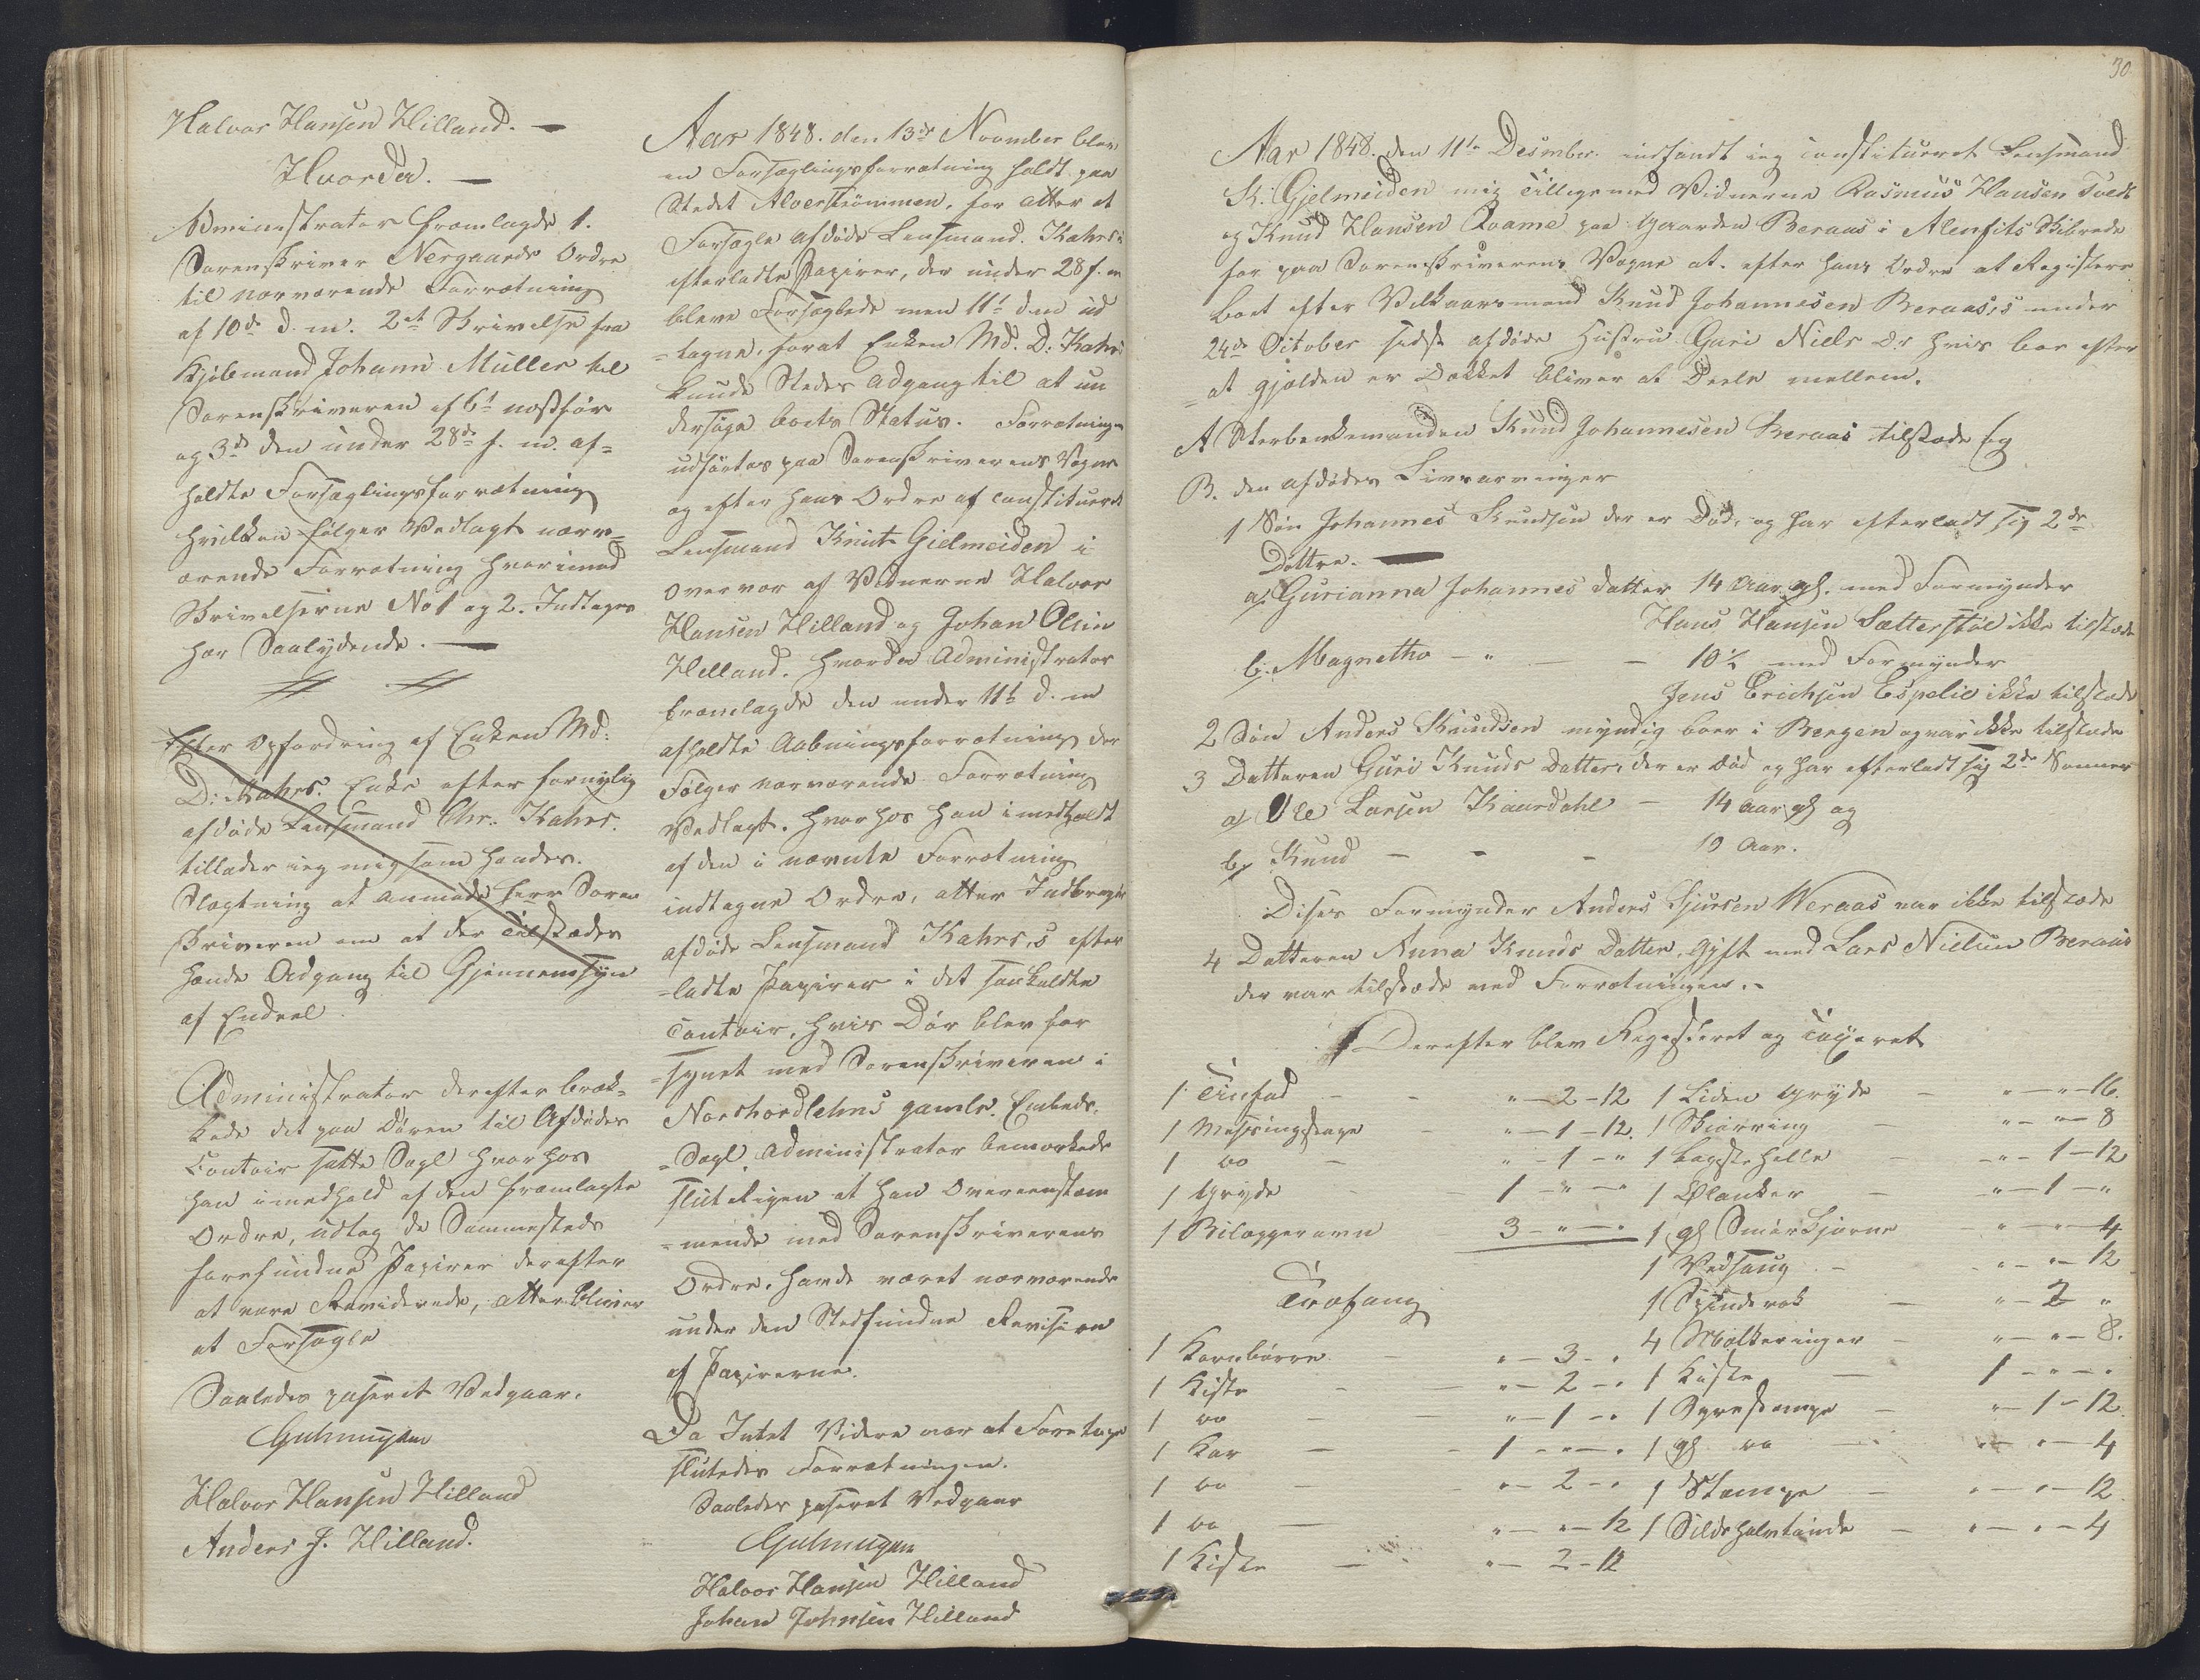 Halvor Hansen Hilland. —
Hvorda. —
Administrator fremlagde 1.
Sorenskriver Nergaards Ordre
til nærværende Forretning
af 10de d. m. 2et Skrivelse fra
Kjøbmand Johann Müller til
Sorenskriveren af 6t næstfør
og 3de den under 28de f. m. af=
holdte Forseglingsforretning
hvilken følger Vedlagt nærv=
ærende Forretning hvorimod
Skrivelserne No 1 og 2. Indtages
her Saalydende. —
Efter Opfordring af Enken Md:
D: Kahrs. Enke efter fornylig
afdøde Lensmand Chr. Kahrs.
tillader jeg mig som hendes
Slægtning at anmode herr Soren
skriveren om at der tilstædes
hende Adgang til Gjennemsyn
af Endeel
Administrator derefter bræk=
kede det paa Døren til Afdødes
Contoir satte Segl hvorhos
han imedhold af den fremlagte
Ordre, udtog de Sammesteds
forefundne Papirer derefter
at være Reviderede, atter bliver
at Forsegle
Saaledes passeret Vedgaar.
Halvor Hansen Hilland
Anders J. Hilland.
Aar 1848. den 13de November blev
en Forseglingsforretning holdt paa
Stedet Alverstrømmen, for atter at
Forsegle afdøde Lensmand Kahrs's
efterladte Papirer, der under 28 f. m
bleve Forseglede men 11t dens ud
=tagne, forat Enken Md. D: Kahrs
kunde Stedes Adgang til at un
dersøge boets Status. Forretningen
udførtes paa Sorenskriverens Vegne
og efter hans Ordre af constitueret
Lensmand Knut Gielmeiden i
overvær af Vidnerne Halvor
Hansen Hilland og Johan Olsen
Helland. Hvorda Administrator
fremlagde den under 11t d. m
afholdte Aabningsforretning der
Følger nærværende Forretning
Vedlagt. Hvorhos han imedhold
af den i nævnte Forretning
indtagne Ordre, atter Indbragte
afdøde Lensmand Kahrs,s efter
=ladte Papirer i det saakaldte
Contoir, hvis Dør blev for
=synet med Sorenskriveren i
Nordhordlehns gamle Embeds=
=Segl. Administrator bemærkede
sluteligen at han Overeenstem
=mende med Sorenskriverens
Ordre, havde været nærværende
under den Stedfundne Revision
af Papirerne.
Da Intet Videre var at Foretage
sluttedes Forretningen.
Saaledes passeret Vedgaar
Halvor Hansen Hilland
Johan Johnsen Hilland
30
Aar 1848. den 11te Desember. indfandt jeg constitueret Lensmand
K: Gjelmeiden mig tilligemed Vidnerne Rasmus Hansen Tvedt
og Knud Hansen Qvame paa Gaarden Beraas i Alenfits Skibrede
for paa Sorenskriverens Vegne at efter hans Ordre at Registere
boet efter Velkaarsmand Knud Johannesen Beraas,s under
24de October sidst afdøde Hustru Guri Niels Dr hvis boe efter
=at gjælden er Dækket bliver at Deele mellem.
A Sterbenkemanden Knud Johannesen Beraas tilstæde og
B. den afdødes Livsarvinger
1 Søn Johannes Knudsen der er Død, og har efterladt sig 2de
Døttre. —
a, Gurianna Johannes Datter 14 Aar gl. med Formynder
Hans Hansen Sætterstøl ikke tilstæde
b, Magnetha — „ — — 10½ med Formynder
Jens Erichsen Espelie ikke tilstæde
2 Søn Anders Knudsen myndig boer i Bergen og var ikke tilstæde
3 Datteren Guri Knuds Datter, der er Død og har efterladt sig 2de Sønner
a, Ole Larsen Kaardahl — 14 aar gl og
b, Knud — - - 10 Aar.
Disses Formynder Anders Sjursen Weraas var ikke tilstæde
4 Datteren Anna Knuds Datter, gift med Lars Nielsen Beraas
der var tilstæde ved Forretningen. -
Derefter blev Registeret og Taxeret
1 Tinfad - - „ — 2 - 12
1 Messingstage - „ — 1 - 12.
1 do - „ - 1 - „
1 Gryde - 1 - „ - „
1 Bilæggerovn 3 - „ - „
Træfang
1 Kornbørre — „ — 3 - „
1 Kiste - — „ — 2 - „
1 do - — „ — 1 - „
1 Kar — - 1 - „ - „
1 do — „ — 2 - „
1 do — „ — „ - 12
1 Kiste — „ — 2 - 12
1 Liden Gryde — „ — „ — 16.
1 Skiørring — „ — „ — 8
1 bagstehelle — „ — 1 - 12
1 Ølanker — „ — 1 - „
1 gl Smørkjerne - „ — „ - 4
1 Vedsaug - „ — „ - 12
1 Spinderok — „ — 2 „
4 Mælkeringer — „ — „ - 8.
1 Kiste — 1 - „ - „
1 Syrestampe — „ — 1 - 12.
1 gl do — „ — „ - 4
1 Stampe — „ — „ — 12
1 Sildehalvtønde — „ — „ - 4